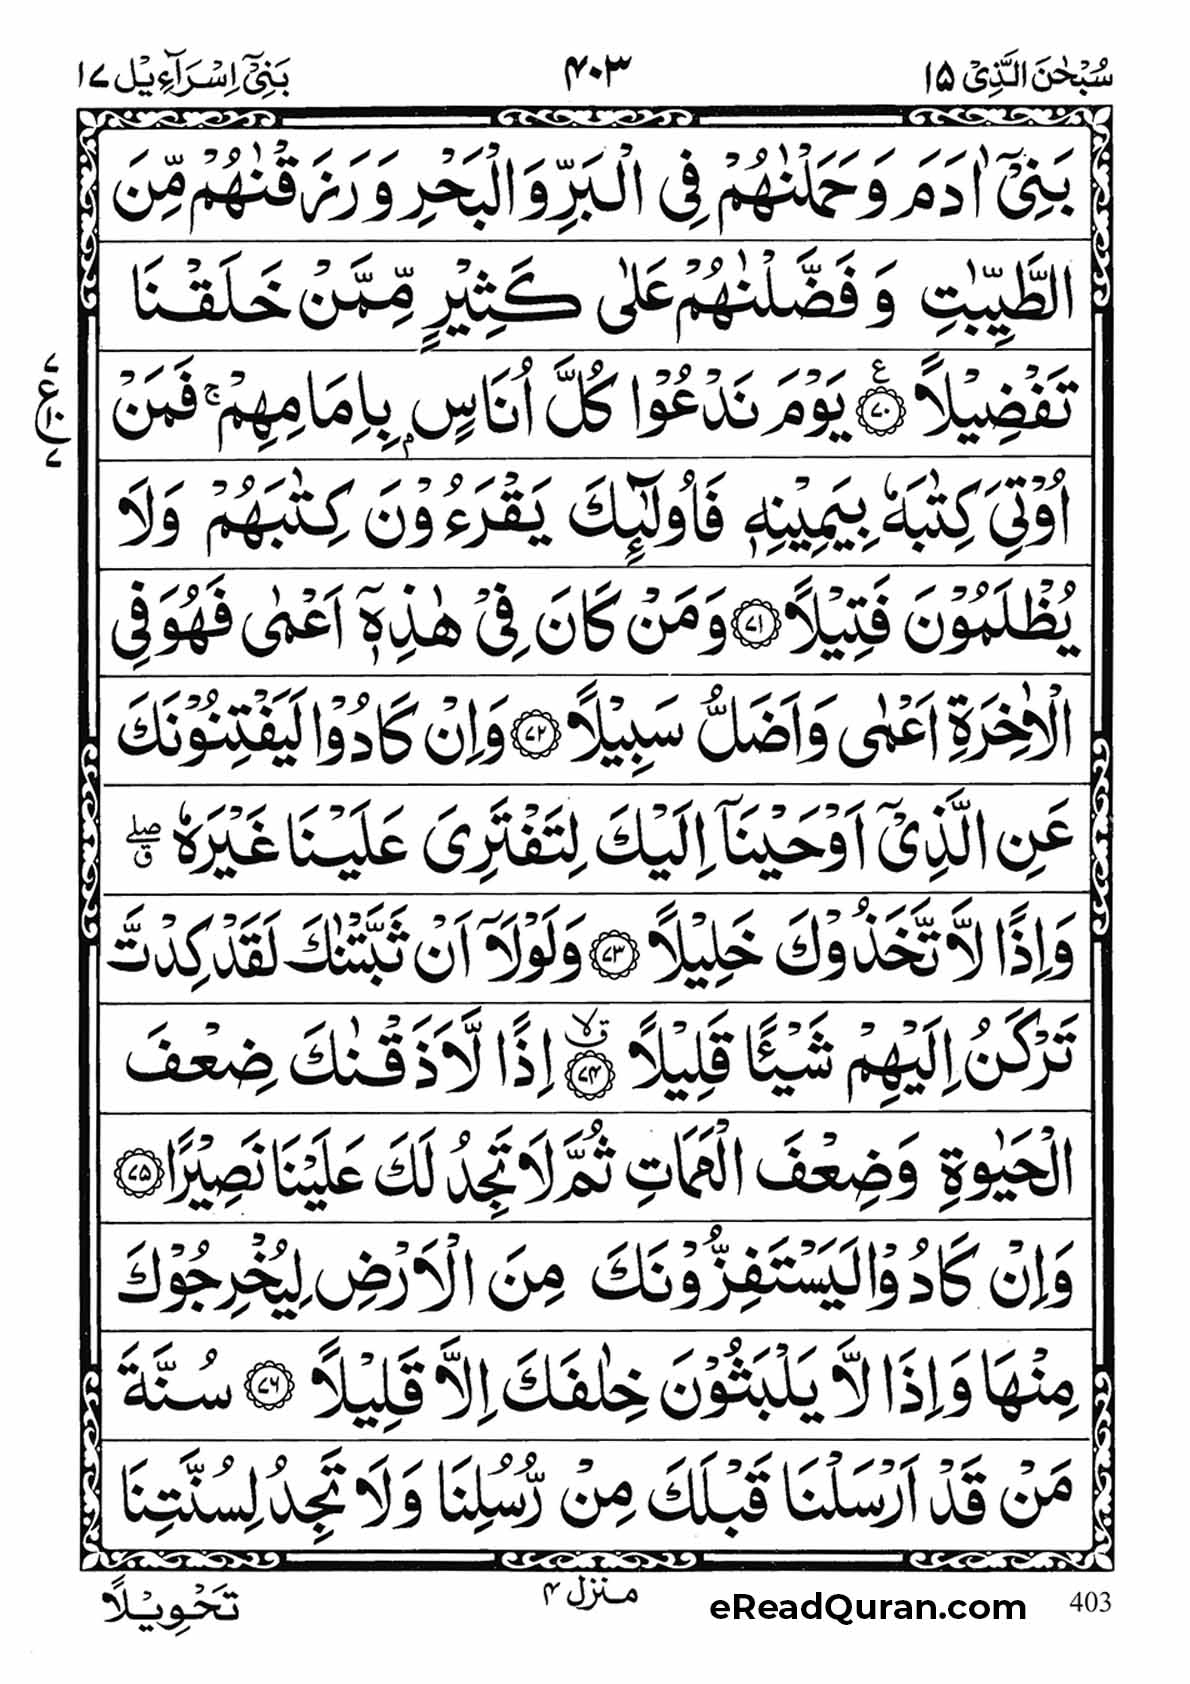 سُبْحٰنَ الَّذِیْۤ ۱۵
۴۰۳
بَنِیْۤ اِسْرَآءِیْل ۱۷
بَنِیْۤ اٰدَمَ وَ حَمَلْنٰهُمْ فِی الْبَرِّ وَ الْبَحْرِ وَ رَزَقْنٰهُمْ مِّنَ
الطَّیِّبٰتِ وَ فَضَّلْنٰهُمْ عَلٰی كَثِیْرٍ مِّمَّنْ خَلَقْنَا
تَفْضِیْلًا ۧ﴿۷۰﴾ یَوْمَ نَدْعُوْا كُلَّ اُنَاسٍۭ بِاِمَامِهِمْ ۚ فَمَنْ
ع ۷ ۷
اُوْتِیَ كِتٰبَهٗ بِیَمِیْنِهٖ فَاُولٰٓئِكَ یَقْرَءُوْنَ كِتٰبَهُمْ وَلَا
یُظْلَمُوْنَ فَتِیْلًا ﴿۷۱﴾ وَ مَنْ كَانَ فِیْ هٰذِهٖۤ اَعْمٰی فَهُوَ فِی
الْاٰخِرَةِ اَعْمٰی وَ اَضَلُّ سَبِیْلًا ﴿۷۲﴾ وَ اِنْ كَادُوْا لَیَفْتِنُوْنَكَ
عَنِ الَّذِیْۤ اَوْحَیْنَاۤ اِلَیْكَ لِتَفْتَرِیَ عَلَیْنَا غَیْرَهٗ ۖۗ
وَ اِذًا لَّا تَّخَذُوْكَ خَلِیْلًا ﴿۷۳﴾ وَ لَوْلَاۤ اَنْ ثَبَّتْنٰكَ لَقَدْ كِدْتَّ
تَرْكَنُ اِلَیْهِمْ شَیْـًٔا قَلِیْلًا ﴿۷۴﴾ۗۙ اِذًا لَّاَذَقْنٰكَ ضِعْفَ
الْحَیٰوةِ وَ ضِعْفَ الْمَمَاتِ ثُمَّ لَا تَجِدُ لَكَ عَلَیْنَا نَصِیْرًا ﴿۷۵﴾
وَ اِنْ كَادُوْا لَیَسْتَفِزُّوْنَكَ مِنَ الْاَرْضِ لِیُخْرِجُوْكَ
مِنْهَا وَ اِذَا لَّا یَلْبَثُوْنَ خِلٰفَكَ اِلَّا قَلِیْلًا ﴿۷۶﴾ سُنَّةَ
مَنْ قَدْ اَرْسَلْنَا قَبْلَكَ مِنْ رُّسُلِنَا وَلَا تَجِدُ لِسُنَّتِنَا
تَحْوِیْلًا
منزل ۴
eReadQuran.com
403